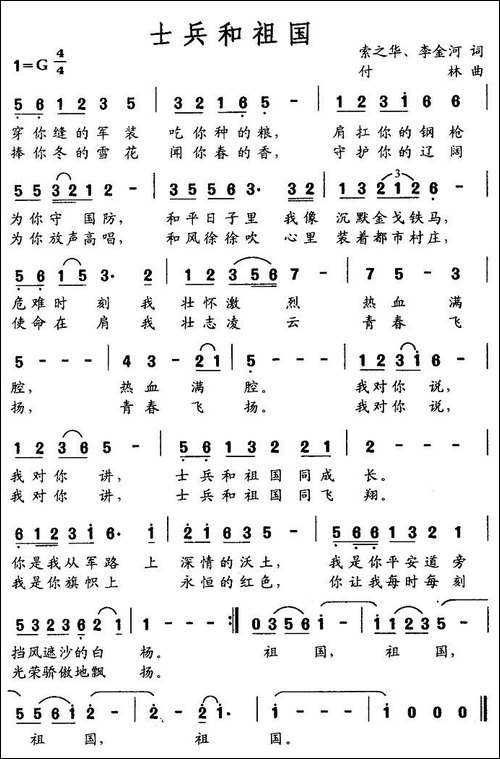 士兵和祖国
1=G 4/4
索之华、李金河 词
付 林 曲
5 6 1 2 3 5 | 3 2 1 6 5 · | 1 2 3 1 6 6 |
穿你缝的军装 吃你种的粮, 肩扛你的钢枪
捧你冬的雪花 闻你春的香, 守护你的辽阔
5 5 3 2 1 2 - | 3 5 5 6 3 · 3 2 | 1 3 2 1 2 6 · |
为你守国防, 和平日子里 我像 沉默金戈铁马,
为你放声高唱, 和风徐徐吹 心里 装着都市村庄,
5 6 1 5 3 · 2 | 1 2 3 5 6 7 - | 7 5 - 3 |
危难时刻我 壮怀激烈 热血满
使命在肩我 壮志凌云 青春飞
5 - - - | 4 3 - 2 1 | 5 - - - | 1 2 3 1 5 - |
腔, 热血满腔。 我对你说,
扬, 青春飞扬。 我对你说,
1 2 3 6 5 - | 5 6 1 3 2 2 1 | 2 - - - |
我对你讲, 士兵和祖国同成长。
我对你讲, 士兵和祖国同飞翔。
6 1 2 3 1 6 · 1 | 2 1 6 3 5 - | 5 5 6 6 1 3 2 1 |
你是我从军路上 深情的沃土, 我是你平安道旁
我是你旗帜上 永恒的红色, 你让我每时每刻
5 3 2 3 6 2 1 | 1 - - - :| 0 3 5 6 1 - | 1 2 3 5 - |
挡风遮沙的白杨。 祖国, 祖国,
光荣骄傲地飘扬。
5 5 6 1 2 - | 2 - 2 1 · | 1 - - - | 1 0 0 0 |
祖国, 祖国。